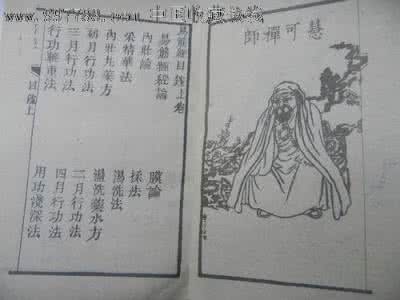 慧可禪師
易筋經目錄上卷
易筋經總論
內壯論 膜論
采精華法 揉法
內壯丸藥方 湯洗法
初月行功法 湯洗藥水方
三月行功法 二月行功法
行功輕重法 四月行功法
用功淺深法
目錄上